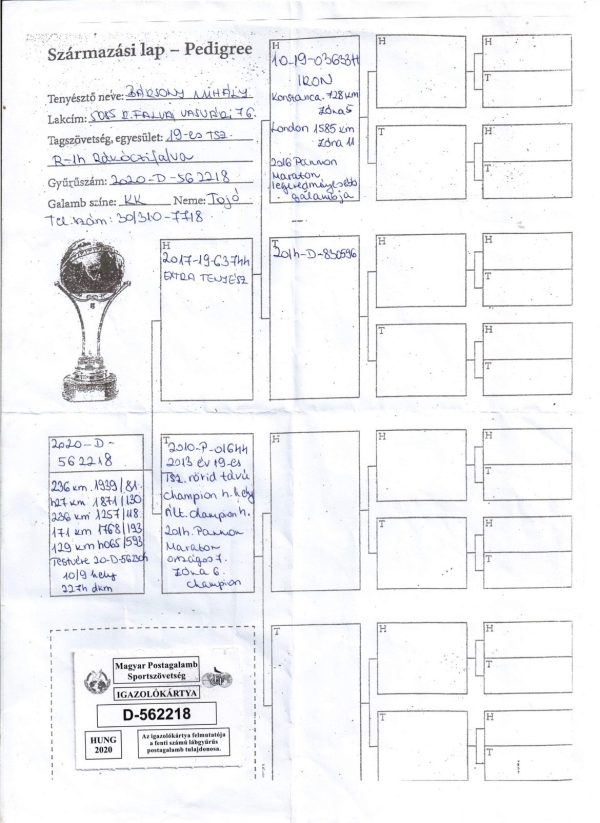 Származási lap – Pedigree
Tenyésztő neve: BÁRSONY MIHÁLY
Lakcím: 5085 R.FALVA VASVÁRI 76.
Tagszövetség, egyesület: 19-es TSZ.
R-14 Rákóczifalva
Gyűrűszám: 2020-D-562218
Galamb színe: KK Neme: Tojó
Tel.szám: 30/310-7718
H
10-19-03653H
IRON
Konstanca 728 km
ZÓNA 5
London 1585 km
ZÓNA 11
2016 Pannon
Maraton
legeredményesebb
galambja
H
2017-19-63744
EXTRA TENYÉSZ
T
2014-D-830596
2020-D-
562218
236 km 1939/81
427 km 1871/130
236 km 1257/118
171 km 1768/193
129 km 4065/593
Testvére 20-D-
10/9 hely
2274 dkm
T
2010-P-01644
2013 év 19-es
TSZ. rövid távú
champion 4. hely
champion 4.
2014. Pannon
Maraton
országos 7.
ZÓNA 6.
champion
H
T
H
T
H
T
H
T
H
T
H
T
H
T
H
T
H
T
H
T
H
T
H
T
H
T
Magyar Postagalamb
Sportszövetség
IGAZOLÓKÁRTYA
D-562218
HUNG
2020
Az igazolókártya felmutatója
a fenti számú lábgyűrűs
postagalamb tulajdonosa.